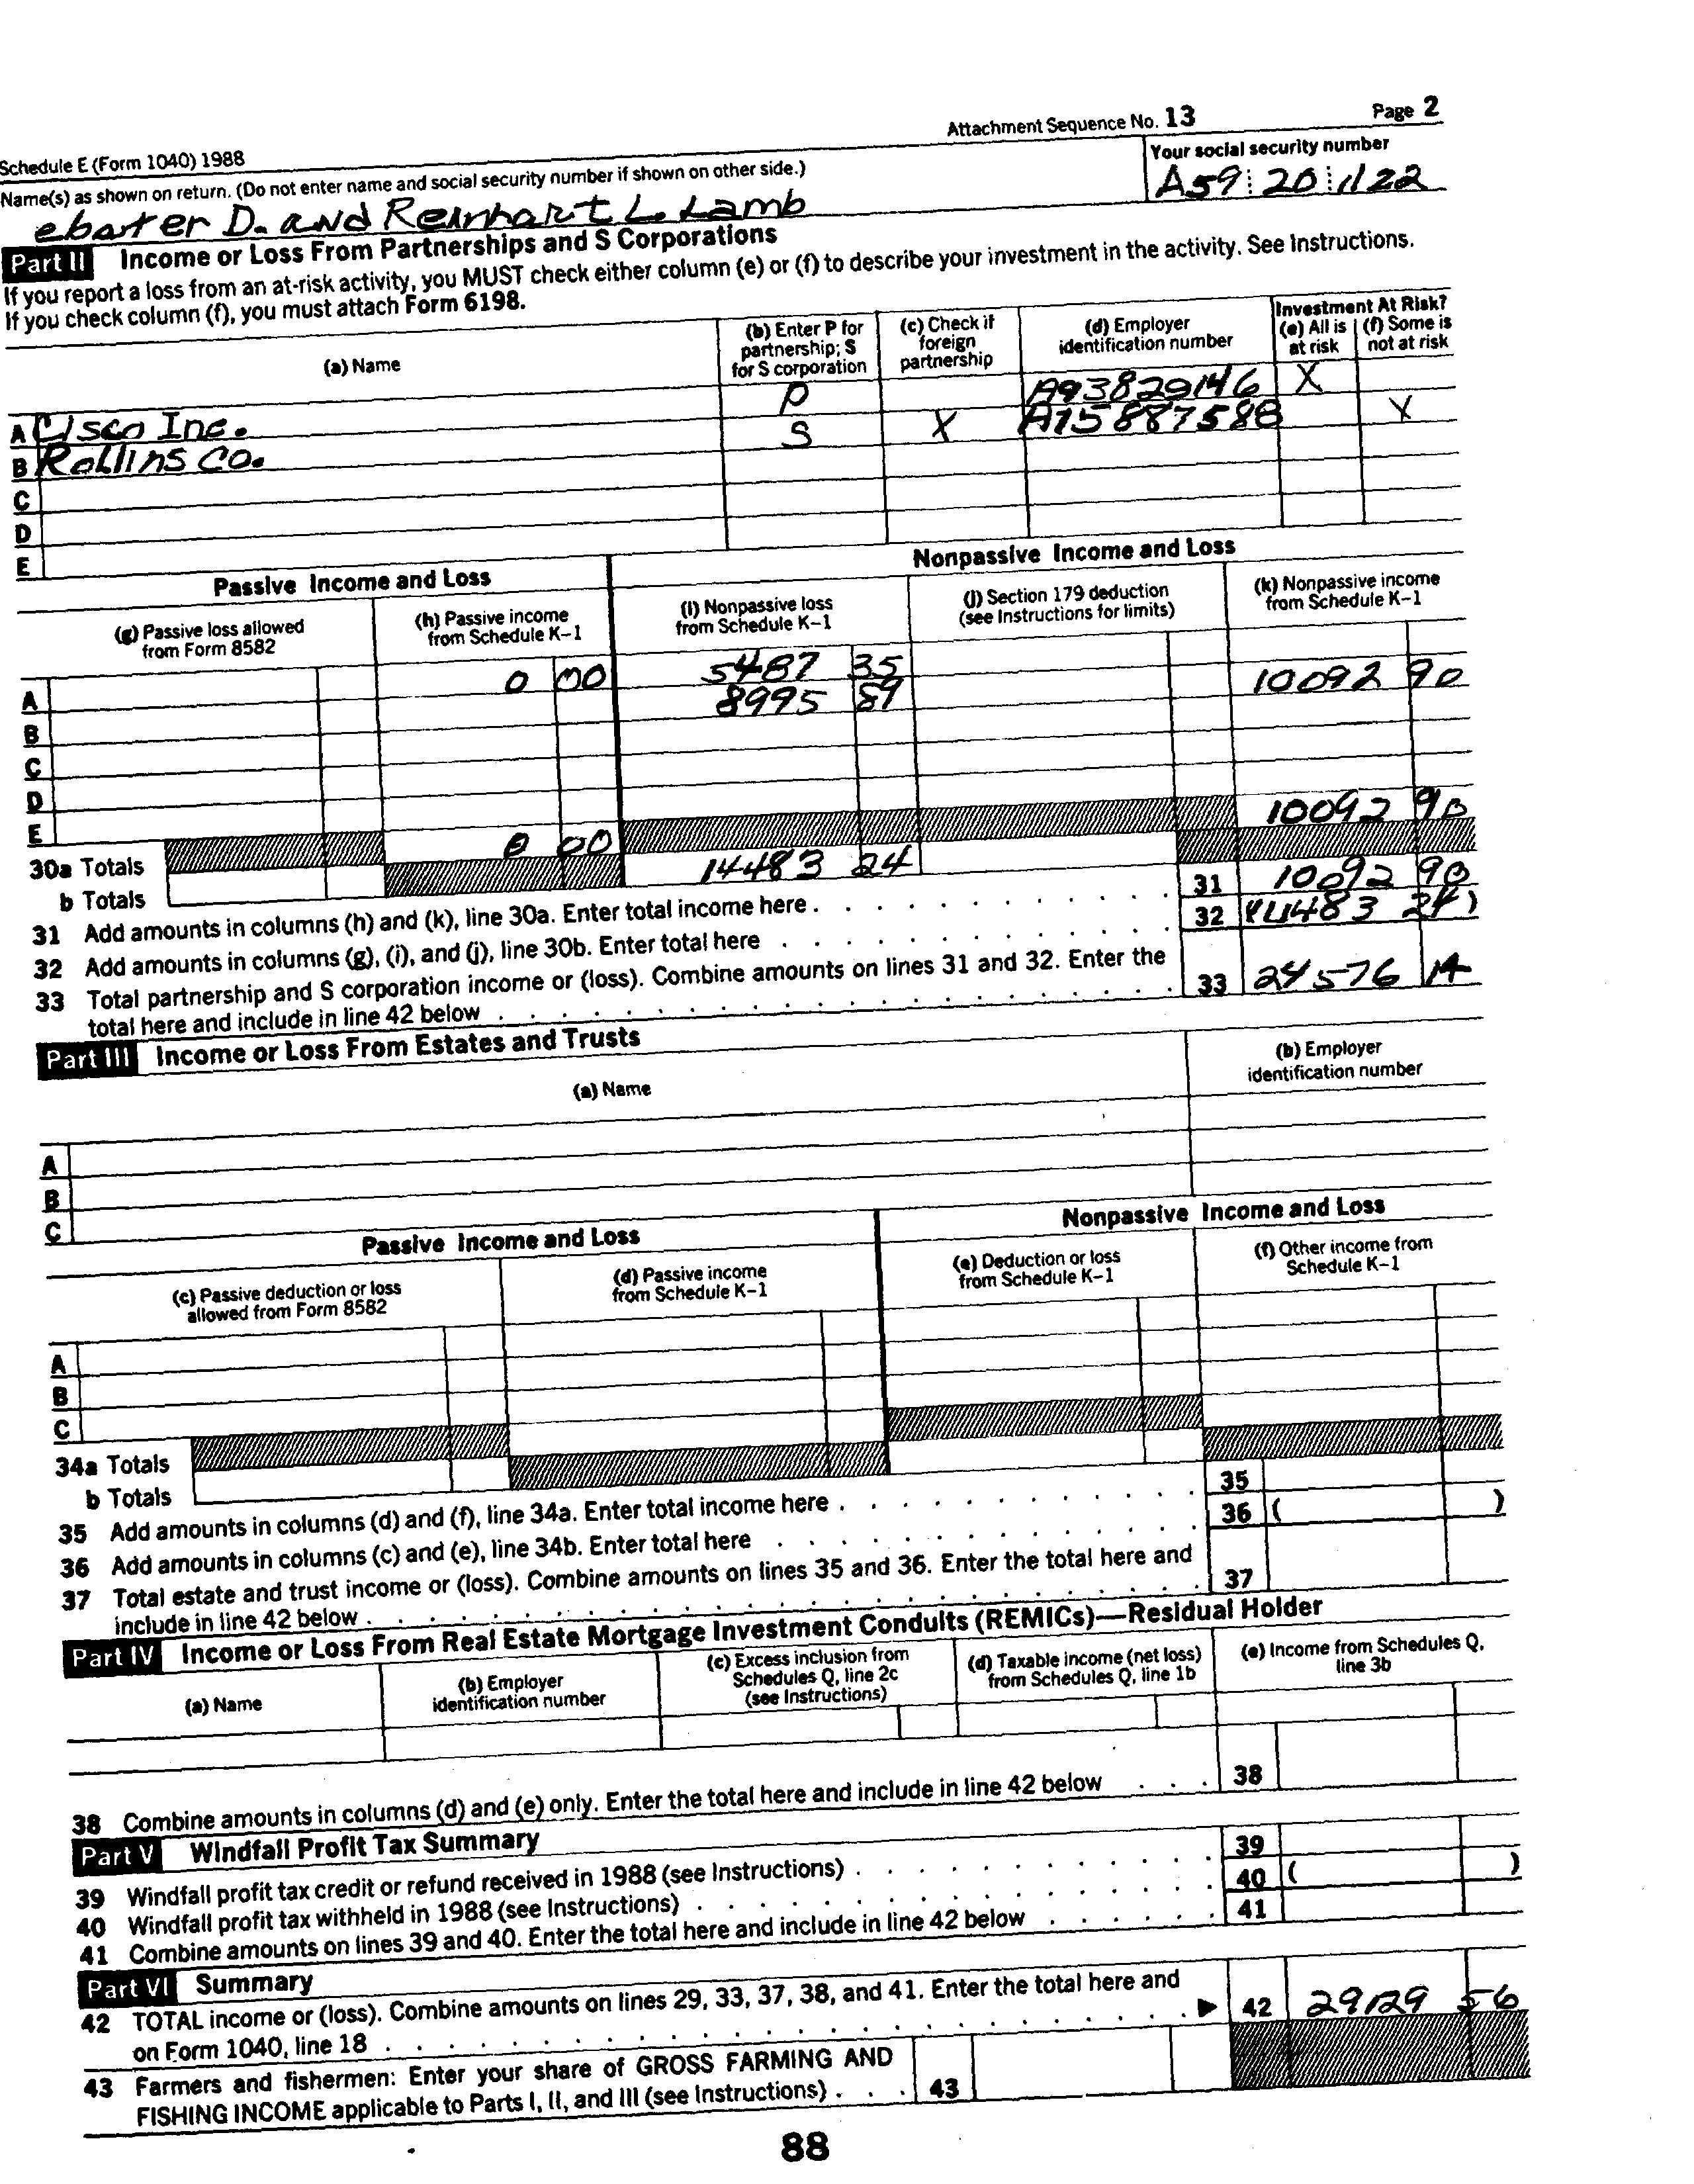 Attachment Sequence No. 13 Page 2
Schedule E (Form 1040) 1988
Name(s) as shown on return. (Do not enter name and social security number if shown on other side.) Your social security number
ebarter D. and Reinhart L. Lamb A59 20 1122
Part II Income or Loss From Partnerships and S Corporations
If you report a loss from an at-risk activity, you MUST check either column (e) or (f) to describe your investment in the activity. See Instructions.
If you check column (f), you must attach Form 6198.
(a) Name (b) Enter P for partnership; S for S corporation (c) Check if foreign partnership (d) Employer identification number Investment At Risk? (e) All is at risk (f) Some is not at risk
A Cisco Inc. P A93829146 X
B Rollins Co. S X A15887588 X
C
D
E
Passive Income and Loss Nonpassive Income and Loss
(g) Passive loss allowed from Form 8582 (h) Passive income from Schedule K–1 (i) Nonpassive loss from Schedule K–1 (j) Section 179 deduction (see Instructions for limits) (k) Nonpassive income from Schedule K–1
A 0 00 5487 35 10092 90
B 8995 89
C
D
E
30a Totals 0 00 10092 90
b Totals 14483 24
31 Add amounts in columns (h) and (k), line 30a. Enter total income here . 31 10092 90
32 Add amounts in columns (g), (i), and (j), line 30b. Enter total here . 32 (14483 24)
33 Total partnership and S corporation income or (loss). Combine amounts on lines 31 and 32. Enter the
total here and include in line 42 below . 33 24576 14
Part III Income or Loss From Estates and Trusts
(a) Name (b) Employer identification number
A
B
C
Passive Income and Loss Nonpassive Income and Loss
(c) Passive deduction or loss allowed from Form 8582 (d) Passive income from Schedule K–1 (e) Deduction or loss from Schedule K–1 (f) Other income from Schedule K–1
A
B
C
34a Totals
b Totals
35 Add amounts in columns (d) and (f), line 34a. Enter total income here . 35
36 Add amounts in columns (c) and (e), line 34b. Enter total here . 36 ( )
37 Total estate and trust income or (loss). Combine amounts on lines 35 and 36. Enter the total here and
include in line 42 below . 37
Part IV Income or Loss From Real Estate Mortgage Investment Conduits (REMICs)—Residual Holder
(a) Name (b) Employer identification number (c) Excess inclusion from Schedules Q, line 2c (see Instructions) (d) Taxable income (net loss) from Schedules Q, line 1b (e) Income from Schedules Q, line 3b
38 Combine amounts in columns (d) and (e) only. Enter the total here and include in line 42 below . . . 38
Part V Windfall Profit Tax Summary
39 Windfall profit tax credit or refund received in 1988 (see Instructions) . 39
40 Windfall profit tax withheld in 1988 (see Instructions) . 40 ( )
41 Combine amounts on lines 39 and 40. Enter the total here and include in line 42 below . 41
Part VI Summary
42 TOTAL income or (loss). Combine amounts on lines 29, 33, 37, 38, and 41. Enter the total here and
on Form 1040, line 18 . ▶ 42 29129 56
43 Farmers and fishermen: Enter your share of GROSS FARMING AND
FISHING INCOME applicable to Parts I, II, and III (see Instructions) . . . 43
88